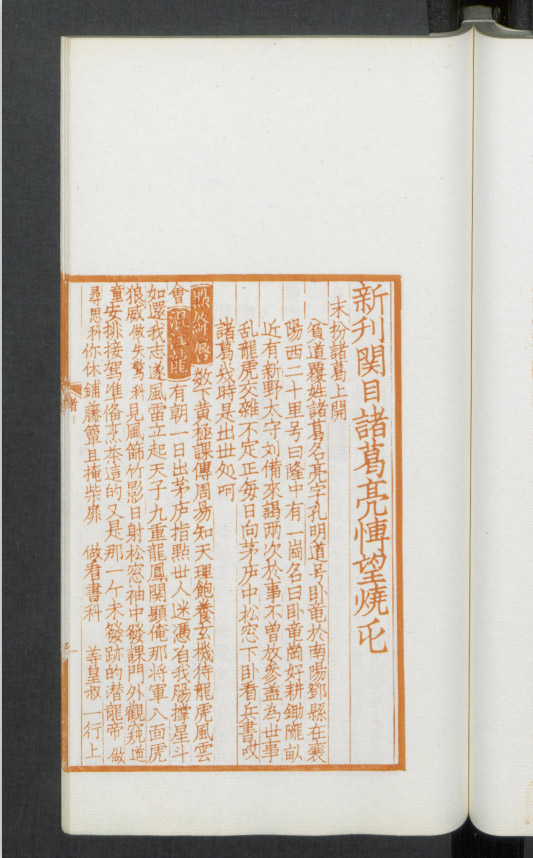 新刊関目諸葛亮博望燒屯
末扮諸葛上開
貧道覆姓諸葛名亮字孔明道号卧竜於南陽鄧縣在襄
陽西二十里号曰隆中有一崗名曰卧竜崗好耕鋤隴畝
近有新野太守刘備來謁兩次於事不曾放參盖為世事
乱龍虎交雜不定正每日向茅庐中松窓下卧看兵書哎
諸葛幾時是出世処呵
點絳唇 数下黄極課傳周易知天理飽養玄機待龍虎風雲
會 混江龍 有朝一日出茅庐指點世人迷憑着我腸撑星斗
如還我志遂風雷立起天子九重龍鳳闕顯俺那將軍八面虎
狼威做失驚科見風篩竹影日射松窓袖中發課門外觀窺道
童安排接駕準俻烹茶這的又是那一个未發跡的潜龍帝做
尋思科你休鋪藤簟且掩柴扉 做看書科 等皇叔一行上